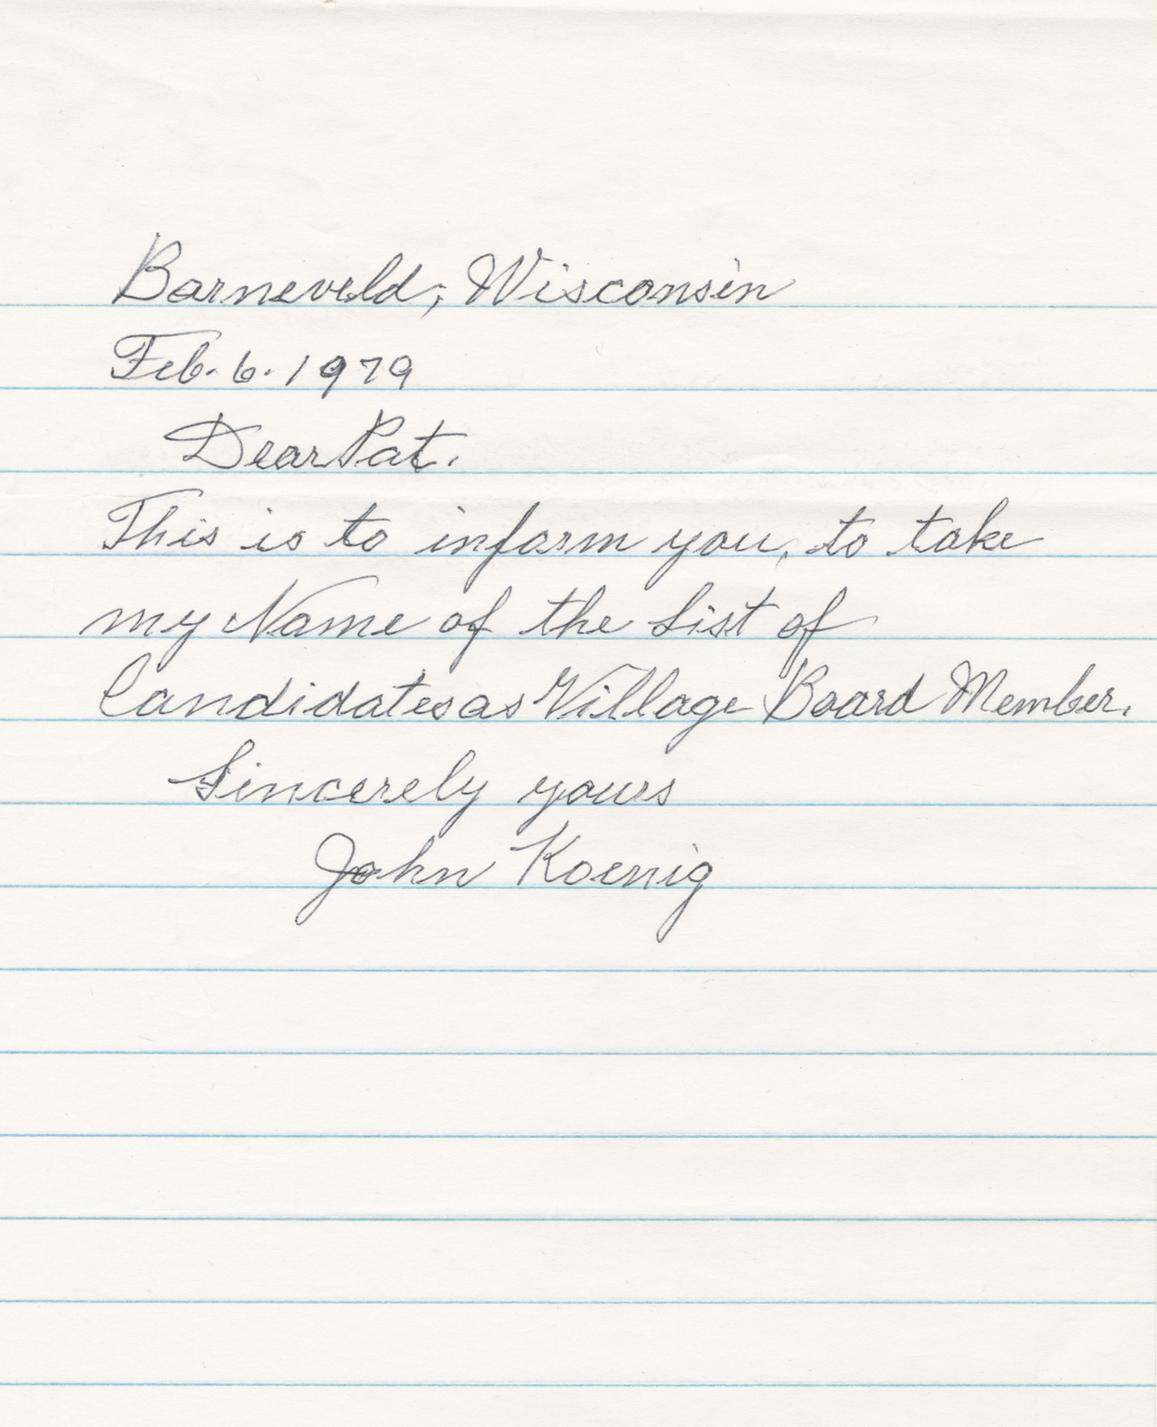 Barneveld, Wisconsin
Feb. 6. 1979
Dear Pat.
This is to inform you, to take
my Name of the List of
Candidates as Village Board Member.
Sincerely yours
John Koenig